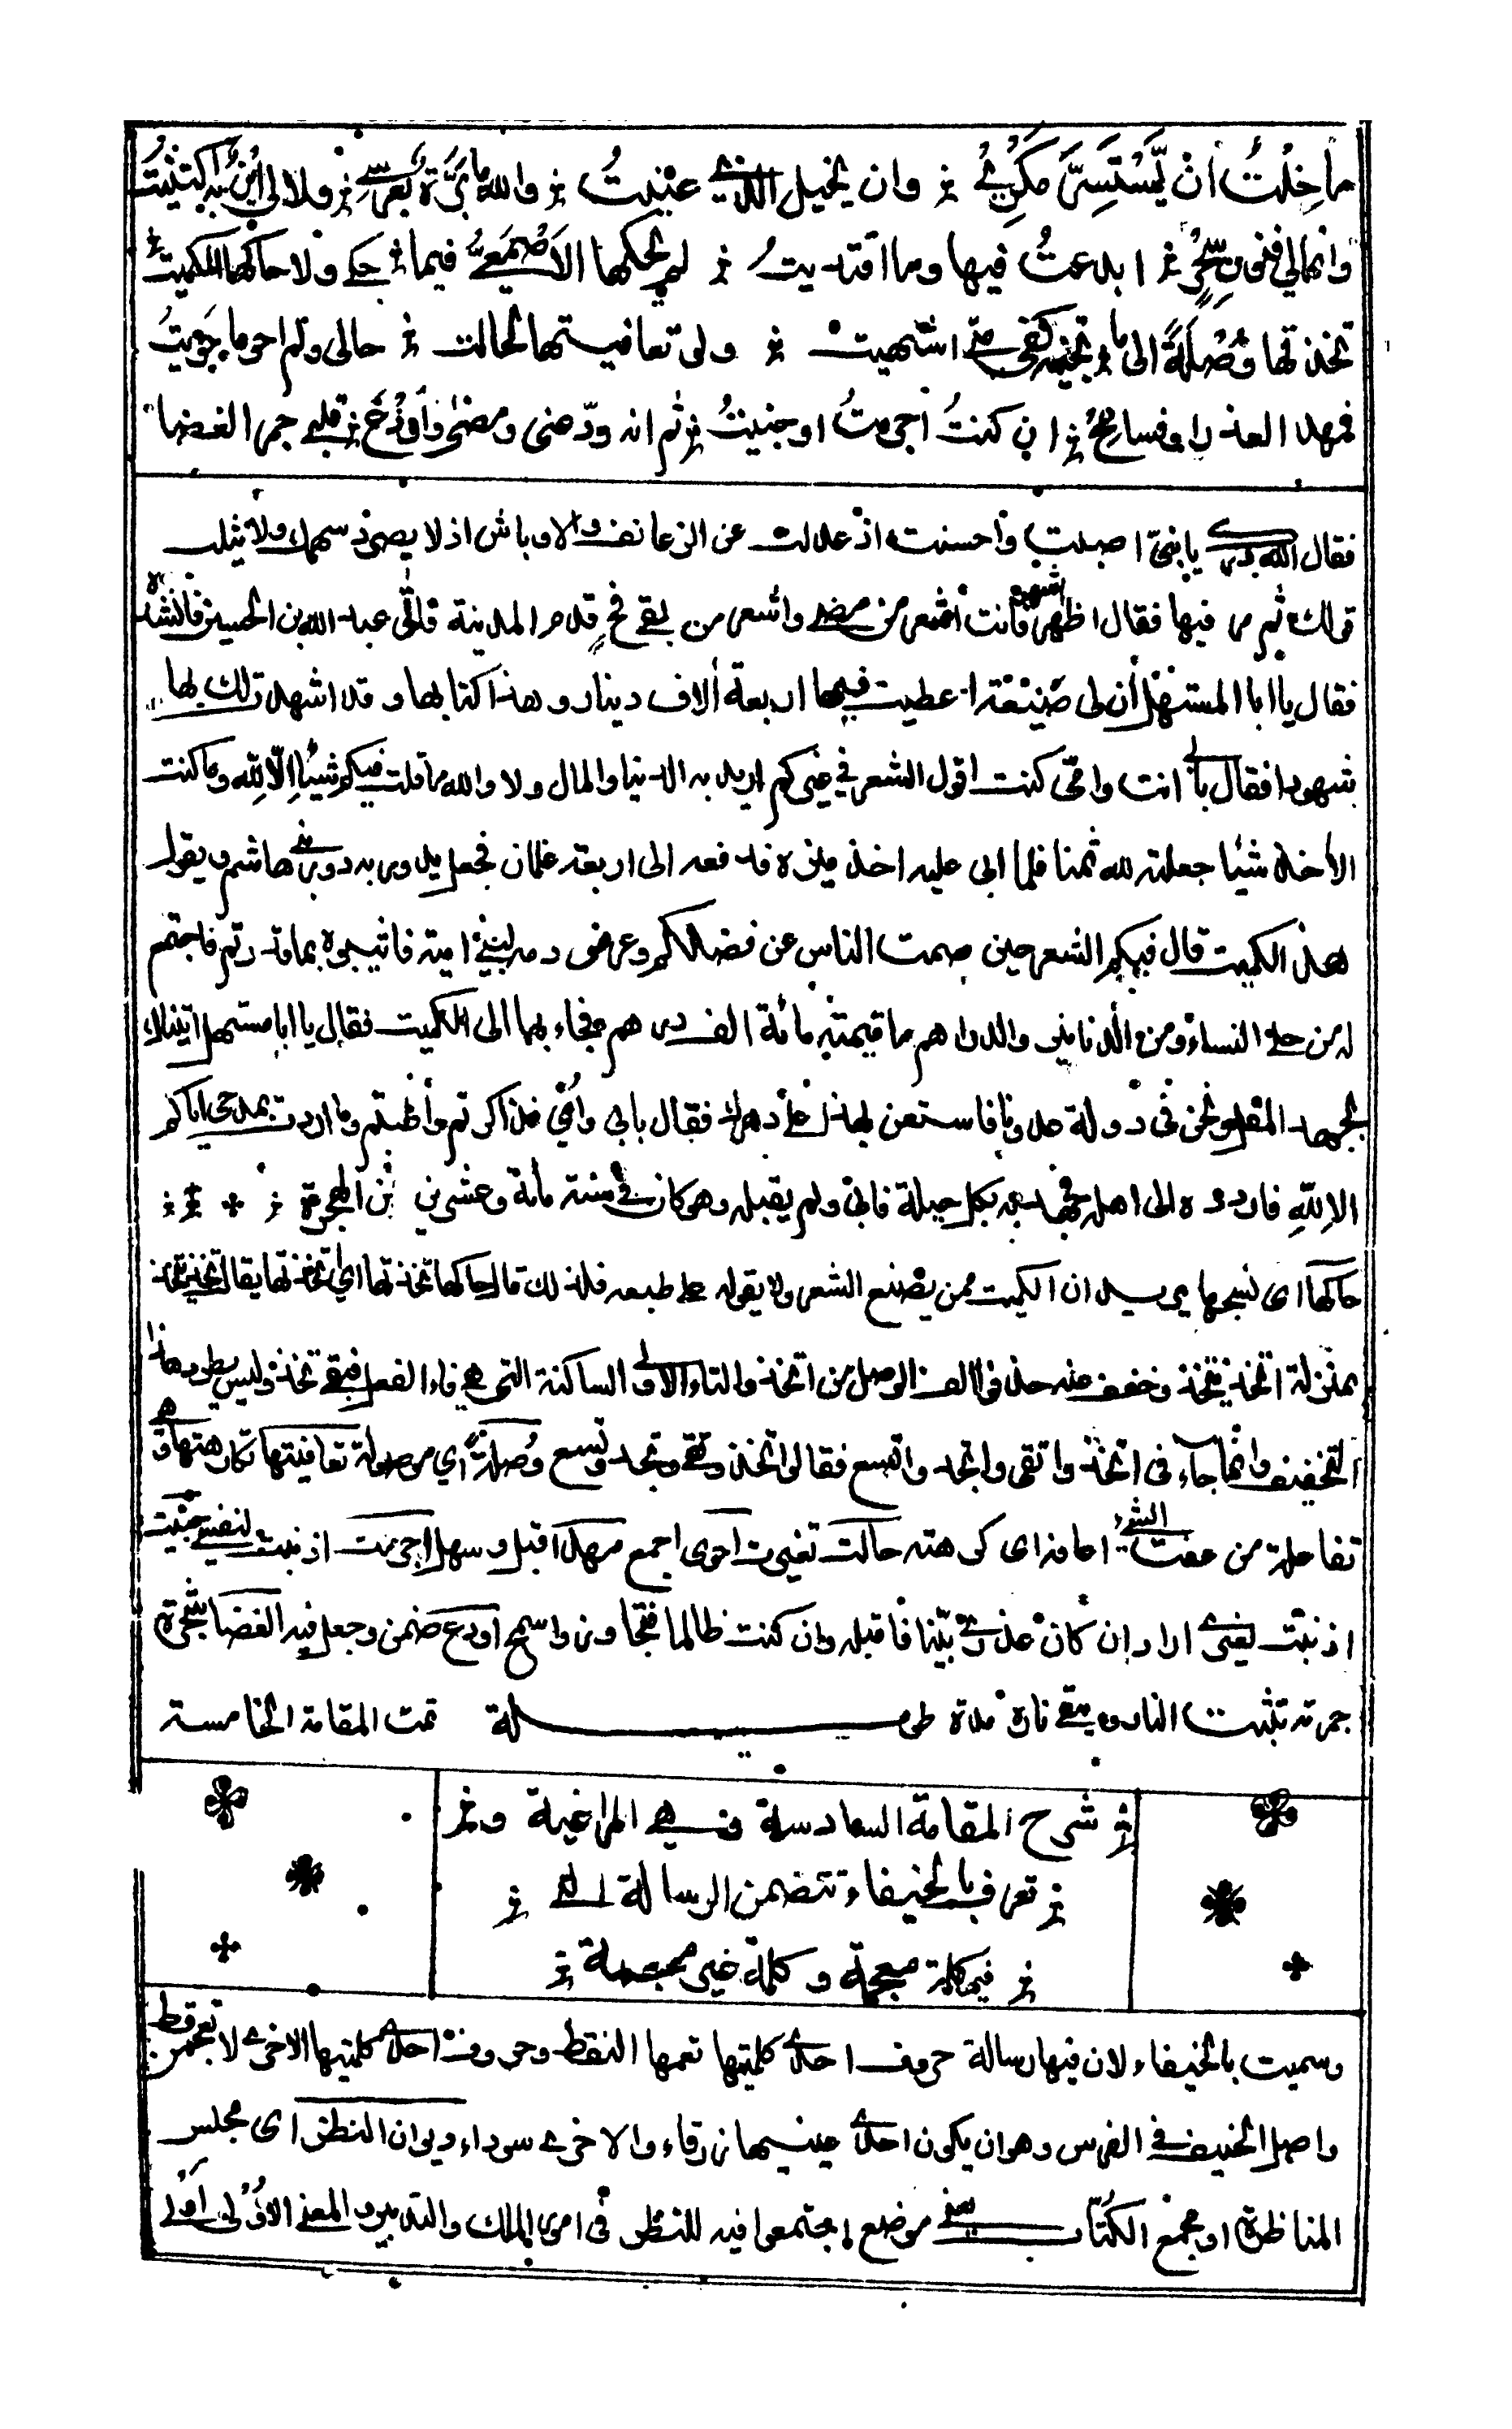 ما خِلْتُ أنْ يَّسْتَسِرَّ مَكْرِيْ ؞ وان يخيل الذي عنيتُ ؞ والله ما بَرَّةٌ بعرسي ؞ ولا لي ابْنٌ به اكتنيتُ
وانما لي فنون سحرٍ ؞ ابدعتُ فيها وما اقتديتُ ؞ لم يحكها الأصْمَعيُّ فيما ؞ حكى ولا حاكها الكميتُ
تخذتها وُصْلةً الى ما ؞ تجنيه كفي متى اشتهيت ؞ ولو تعافيتها لحالت ؞ حالي ولم احو ما حويتُ
فمهد العذر او فسامحْ ؞ ان كنتُ اجرمتُ او جنيتُ ؞ ثم انه ودّعني ومضى وأَوْدَعَ ؞ قلبي جمر الغضا
فقال لله درك يا بنيّ اصبت واحسنت اذ عدلت عن الزعانف والاوباش اذ لا يصرد سهمك ولا يثلب
قولك ثم مر فيها فقال اظهر فانت اشعر من مضى واشعر من بقي قدم المدينة فاتى عبد الله بن الحسين فانشده
فقال يا ابا المستهل ان لي ضيعة اعطيت فيها اربعة آلاف دينار وهذا كتابها وقد اشهدت لك بها
شهودا فقال بابي انت وامّي كنت اقول الشعر في غيركم اريد به الدنيا والمال ولا والله ما قلت فيكم شيئا الّا لله وما كنت
لآخذ شيئا جعلته لله ثمنا فلما ابى عليه اخذ فدفعه الى اربعة غلمان فجعل يدور به دور بني هاشم ويقول
هذا الكميت قال فيكم الشعر حين صمت الناس عن فضلكم وعرض دمه لبني امية فاثيبوه بما قدرتم فاجتمع
له من حلي النساء ومن الدنانير والدراهم ما قيمته مائة الف درهم فجاء بها الى الكميت فقال يا ابا مستهل اتيناك
بجهد المقل ونحن في دولة عدونا فاستعن بهذا على دهرك فقال بابي وامّي قد اكثرتم واطبتم وما اردت بمدحي اياكم
الا لله فاردده الى اهله فجهد به بكل حيلة فابى ولم يقبله وهو كان في سنة مائة وعشرين من الهجرة ؞
حاكها اى نسجها يريد ان الكميت ممن يصنع الشعر ولا يقوله على طبعه فلذلك قال حاكها تخذتها اي اتخذتها يقال تخذ يتخذ
بمنزلة اتخذ يتخذ وخفف منه حذفوا الف الوصل من اتخذ والتاء الاولى الساكنة التي هي فاء الفعل فبقي تخذ وليس يطرد هذا
التخفيف وانما جاء في اتخذ واتقى واتجه واتسع فقالوا تخذ وتقى وتجه وتسع وُصلةً اي موصولة تعافيتها تكارهتها وهي
تفاعلت من عفت الشيء اعافه اى كرهته حالت تغيرت احوى اجمع مهد اقبل وسهل اجرمت اذنبت لنفسي جنيت
اذنبت لغيري اراد ان كان عذري بيّنا فاقبله وان كنت ظالما فتجاوز واسمح اودع ضمن وجعل فيه الغضا شجرة
جمرته تثبت النار ويبقى ناره مدة طويلة تمت المقامة الخامسة
؞ شرح المقامة السادسة وهي المراغية و ؞
؞ تعرف بالخيفاء تتضمن الرسالة التي ؞
؞ فيها كلمة معجمة وكلمة غير معجمة ؞
وسميت بالخيفاء لان فيها رسالة حروف احدى كلمتيها تعمها النقط وحروف احدى كلمتيها الاخرى لا تعجمن قط
واصل الخيف في الفرس وهو ان يكون احدى عينيها زرقاء والاخرى سوداء ديوان النظر اى مجلس
المناظرة او مجمع الكُتّاب يعني موضع اجتمعوا فيه للنظر في امور الملك والتدبير والمعنى الاوّل اولى